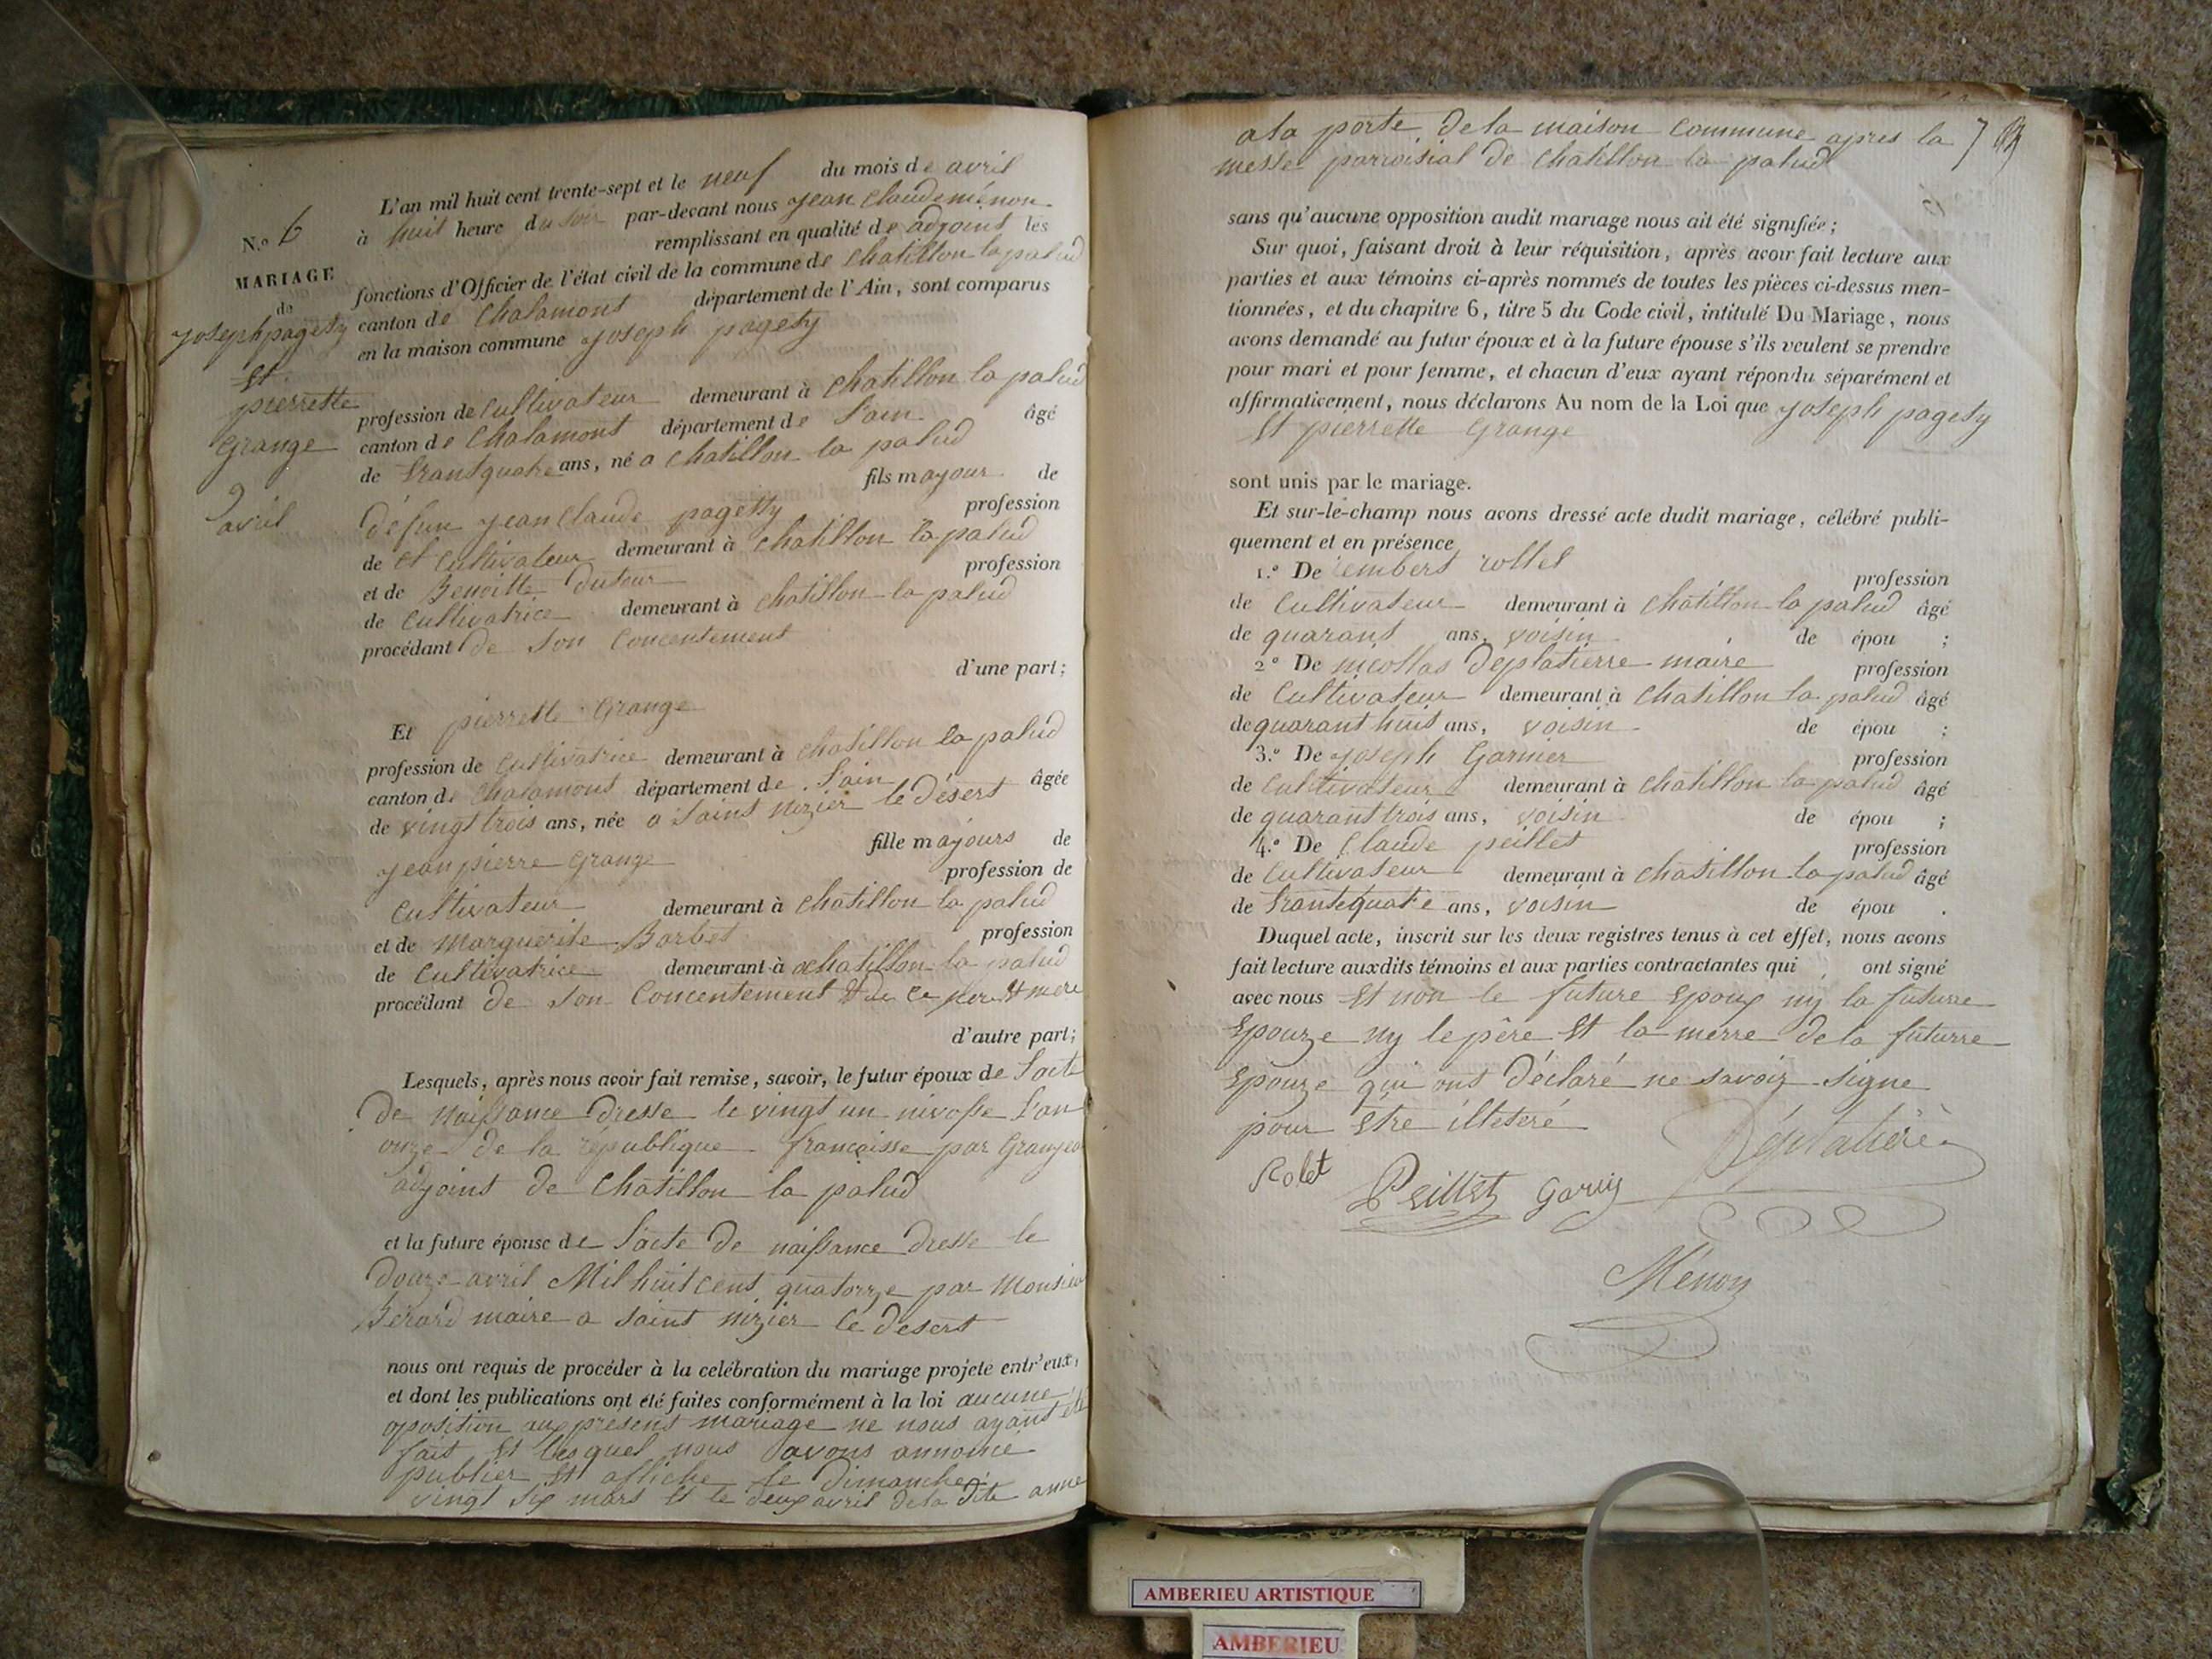 N.o 6
MARIAGE
de
joseph pagety
Et
pierrette
Grange
9
avril
L'an mil huit cent trente-sept et le neuf du mois de avril
à huit heure du soir par-devant nous jean Claude ménon
remplissant en qualité de adjoint les
fonctions d'Officier de l'état civil de la commune de Chatillon la palud
canton de Chalamont département de l'Ain, sont comparus
en la maison commune joseph pagety
profession de Cultivateur demeurant à Chatillon la palud
canton de Chalamont département de l'ain âgé
de trantquatre ans, né a Chatillon la palud
fils majour de
défun jean Claude pagetty profession
de et Cultivateur demeurant à Chatillon la palud
et de Benoitte Dutour profession
de Cultivatrice demeurant à Chatillon la palud
procédant de son Concentement
d'une part;
Et pierrette Grange
profession de Cultivatrice demeurant à Chatillon la palud
canton de Chalamont département de l'ain âgée
de vingt trois ans, née a Saint Nizier le désert
fille majours de
jean pierre Grange profession de
Cultivateur demeurant à Chatillon la palud
et de Marguerite Barbet profession
de Cultivatrice demeurant à Chatillon la palud
procédant de son Concentement Et de Ce pere Et mere
d'autre part;
Lesquels, après nous avoir fait remise, savoir, le futur époux de l'acte
De Naissance dresse le vingt un nivosse l'an
onze de la république françaisse par
adjoint de Chatillon la palud
et la future épouse de l'acte de naissance dresse le
Douze avril Mil huit cent quatorze par Monsieu
Bérard maire a Saint Nizier le desert
nous ont requis de procéder à la celébration du mariage projeté entr'eux,
et dont les publications ont été faites conformément à la loi aucune
oposition aux présent mariage ne nous ayant été
fait Et lesquel nous avons annoncé
publier Et affiche le Dimanche
vingt six mars Et le deux avril de la dite anne
a la porte de la maison Commune apres la 7
messe parroisial de Chatillon la palud
sans qu'aucune opposition audit mariage nous ait été signifiée;
Sur quoi, faisant droit à leur réquisition, après avoir fait lecture aux
parties et aux témoins ci-après nommés de toutes les pièces ci-dessus men-
tionnées, et du chapitre 6, titre 5 du Code civil, intitulé Du Mariage, nous
avons demandé au futur époux et à la future épouse s'ils veulent se prendre
pour mari et pour femme, et chacun d'eux ayant répondu séparément et
affirmativement, nous déclarons Au nom de la Loi que joseph pagety
Et pierrette Grange
sont unis par le mariage.
Et sur-le-champ nous avons dressé acte dudit mariage, célébré publi-
quement et en présence
1.o De rembert rollet profession
de Cultivateur demeurant à Chatillon la palud âgé
de quarant ans, voisin de épou ;
2o De nicollas Deplatierre maire profession
de Cultivateur demeurant à Chatillon la palud âgé
de quarant huit ans, voisin de épou ;
3.o De joseph Garnier profession
de Cultivateur demeurant à Chatillon la palud âgé
de quarant trois ans, voisin de épou ;
4.o De Claude peillet profession
de Cultivateur demeurant à Chatillon la palud âgé
de trantequatre ans, voisin de épou .
Duquel acte, inscrit sur les deux registres tenus à cet effet, nous avons
fait lecture auxdits témoins et aux parties contractantes qui ont signé
avec nous Et non le future Epoux ny la futurre
Epouze ny le père Et la merre de la futurre
Epouze qui ont déclaré ne savoir signe
pour Etre illeteré
Rolet Peillet Déplatière
Ménon
AMBERIEU ARTISTIQUE
AMBERIEU